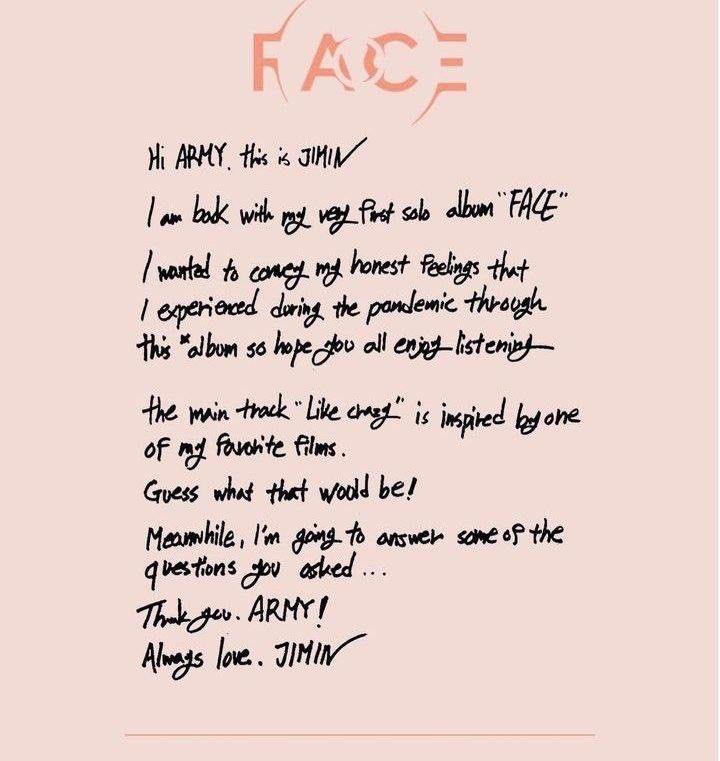 FACE
Hi ARMY. this is JIMIN
I am back with my very first solo album "FACE"
I wanted to convey my honest feelings that
I experienced during the pandemic through
this *album so hope you all enjoy listening
the main track "Like crazy" is inspired by one
of my favorite films.
Guess what that would be!
Meanwhile, I'm going to answer some of the
questions you asked ...
Thank you. ARMY!
Always love. JIMIN